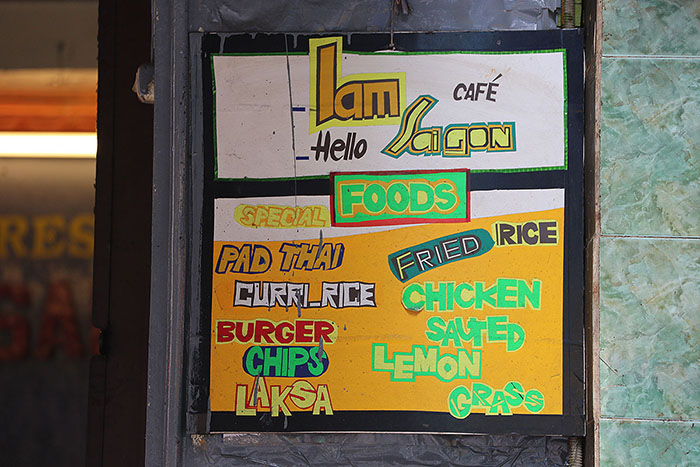 Iam CAFÉ
Hello SAIGON
FOODS
SPECIAL
PAD THAI
CURRI_RICE
BURGER
CHIPS
LAKSA
FRIED RICE
CHICKEN
SAUTED
LEMON
GRASS
RES